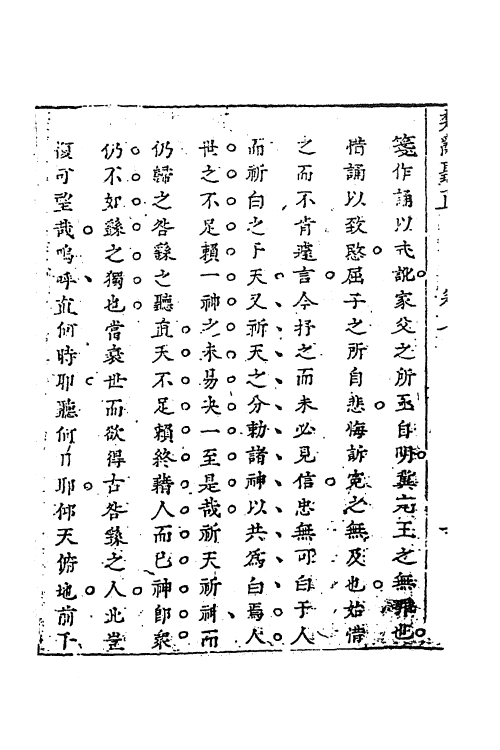 箋作誦以𠃔訛家父之所以自明冀尤王之無罪也
惜誦以致愍屈子之所自悲悔訴寃之無及也始惜
之而不肯遽言今抒之而未必見信忠無可白于人
而祈白之于天又祈天之分勅諸神以共爲白焉人
世之不足賴一神之未易决一至是哉祈天祈神而
仍歸之咎繇之聽直天不足賴終藉人而已神卽衆
仍不如繇之獨也當衰世而欲得古咎繇之人此豈
復可望哉嗚呼直何時耶聽何日耶仰天俯地前下